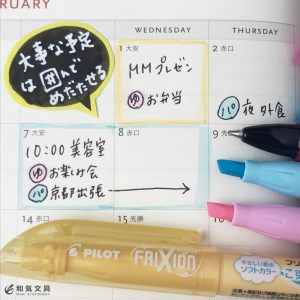 RUARY
WEDNESDAY
THURSDAY
大事な予定
は囲んで
めだたせる
1 大安
2 赤口
MMプレゼン
ゆ お弁当
7 大安
8 赤口
9 先勝
パ 夜 外食
10:00 美容室
ゆ お楽しみ会
パ 京都出張
14 赤口
15 先勝
PILOT
FRIXION
やさしい色の
ソフトカラー
フリ
こす
和気文具
WAKI STATIONERY